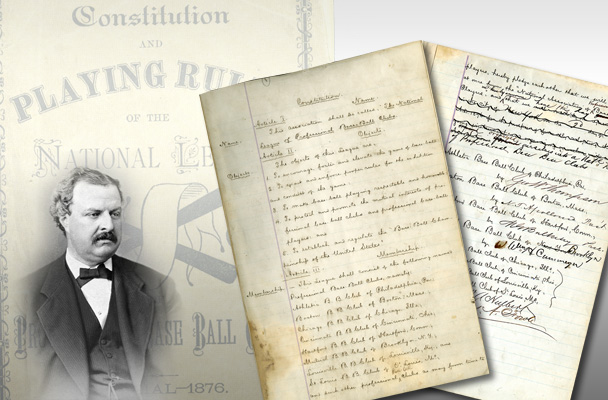 Constitution
AND
PLAYING RUL
OF THE
NATIONAL LE
ASE BALL
AL—1876.
Constitution.
Name
Article I.
Name.
This association shall be called "The National
League of Professional Base Ball Clubs
Article II
Objects.
Objects.
The objects of this League are.
1. To encourage foster and elevate the game of base ball
2. To enact and enforce proper rules for the exhibition
and conduct of the game
3. To make base ball playing respectable and honorable
4. To protect and promote the mutual interests of pro-
fessional base ball clubs and professional base ball
players and
5. To establish and regulate the Base Ball Cham-
pionship of the United States"
Article III
Membership.
Membership.
This League shall consist of the following named
Professional Base Ball Clubs, namely:
Athletic B. B. Club of Philadelphia, Pa.
Boston B. B. Club of Boston, Mass.,
Chicago B. B. Club of Chicago, Ills.
Cincinnati B. B. Club of Cincinnati, Ohio,
Hartford B. B. Club of Hartford, Conn.,
Mutual B. B. Club of Brooklyn, N.Y.,
Louisville B. B. Club of Louisville, Ky., and
St. Louis B. B. Club of St. Louis, Mo.
and such other professional clubs as may from time to
Base Ball Club of Philadelphia, Pa.
by
Base Ball Club of Boston, Mass.
by
Base Ball Club of Hartford, Conn.
by
Base Ball Club of Brooklyn
by Wm. H. Cammeyer
Ball Club of Chicago, Ills.
Ball Club of Cincinnati, Ohio
Ball Club of Louisville, Ky.
Ball Club of St. Louis, Mo.